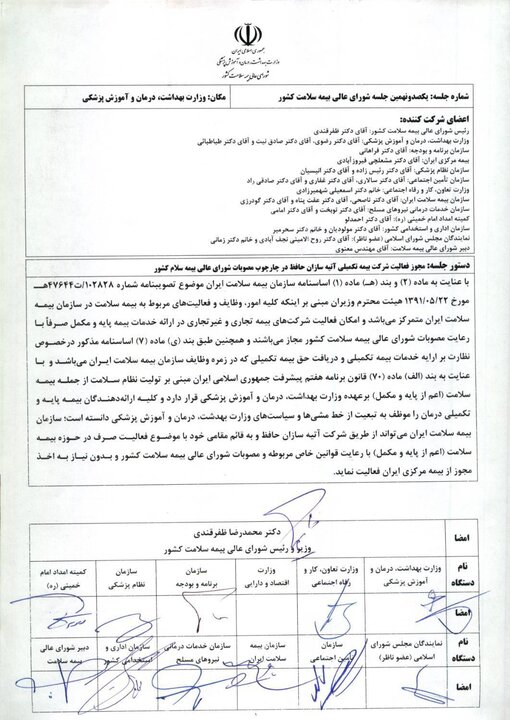 جمهوری اسلامی ایران
وزارت بهداشت، درمان و آموزش پزشکی
شورای عالی بیمه سلامت کشور
شماره جلسه: یکصدونهمین جلسه شورای عالی بیمه سلامت کشور
مکان: وزارت بهداشت، درمان و آموزش پزشکی
اعضای شرکت کننده:
رئیس شورای عالی بیمه سلامت کشور: آقای دکتر ظفرقندی
وزارت بهداشت، درمان و آموزش پزشکی: آقای دکتر رضوی، آقای دکتر صادق نیت و آقای دکتر طباطبائی
سازمان برنامه و بودجه: آقای دکتر فراهانی
بیمه مرکزی ایران: آقای دکتر مشعلچی فیروزآبادی
سازمان نظام پزشکی: آقای دکتر رئیس زاده و آقای دکتر انیسیان
سازمان تأمین اجتماعی: آقای دکتر سالاری، آقای دکتر غفاری و آقای دکتر صادقی راد
وزارت تعاون، کار و رفاه اجتماعی: خانم دکتر اسمعیلی شهمیرزادی
سازمان بیمه سلامت ایران: آقای دکتر ناصحی، آقای دکتر عفت پناه و آقای دکتر گودرزی
سازمان خدمات درمانی نیروهای مسلح: آقای دکتر نوبخت و آقای دکتر امامی
کمیته امداد امام خمینی (ره): آقای دکتر احمدلو
سازمان اداری و استخدامی کشور: آقای دکتر مولودیان و خانم دکتر سحرمیر
نمایندگان مجلس شورای اسلامی (عضو ناظر): آقای دکتر روح الامینی نجف آبادی و خانم دکتر زمانی
دبیر شورای عالی بیمه سلامت: آقای مهندس معنوی
دستور جلسه: مجوز فعالیت شرکت بیمه تکمیلی آتیه سازان حافظ در چارچوب مصوبات شورای عالی بیمه سلام کشور
با عنایت به ماده (۲) و بند (هـ) ماده (۱) اساسنامه سازمان بیمه سلامت ایران موضوع تصویبنامه شماره ۱۰۲۸۲۸/ت۴۷۶۴۴هـ
مورخ ۱۳۹۱/۰۵/۲۲ هیئت محترم وزیران مبنی بر اینکه کلیه امور، وظایف و فعالیت‌های مربوط به بیمه سلامت در سازمان بیمه
سلامت ایران متمرکز می‌باشد و امکان فعالیت شرکت‌های بیمه تجاری و غیرتجاری در ارائه خدمات بیمه پایه و مکمل صرفاً با
رعایت مصوبات شورای عالی بیمه سلامت کشور مجاز می‌باشند و همچنین طبق بند (ی) ماده (۷) اساسنامه مذکور درخصوص
نظارت بر ارایه خدمات بیمه تکمیلی و دریافت حق بیمه تکمیلی که در زمره وظایف سازمان بیمه سلامت ایران می‌باشد و با
عنایت به بند (الف) ماده (۷۰) قانون برنامه هفتم پیشرفت جمهوری اسلامی ایران مبنی بر تولیت نظام سلامت از جمله بیمه
سلامت (اعم از پایه و مکمل) برعهده وزارت بهداشت، درمان و آموزش پزشکی قرار دارد و کلیه ارائه‌دهندگان بیمه پایه و
تکمیلی درمان را موظف به تبعیت از خط مشی‌ها و سیاست‌های وزارت بهدشت، درمان و آموزش پزشکی دانسته است؛ سازمان
بیمه سلامت ایران می‌تواند از طریق شرکت آتیه سازان حافظ و به قائم مقامی خود با موضوع فعالیت صرف در حوزه بیمه
سلامت (اعم از پایه و مکمل) با رعایت قوانین خاص مربوطه و مصوبات شورای عالی بیمه سلامت کشور و بدون نیاز به اخذ
مجوز از بیمه مرکزی ایران فعالیت نماید.
امضا
دکتر محمدرضا ظفرقندی
وزیر و رئیس شورای عالی بیمه سلامت کشور
نام دستگاه
وزارت بهداشت، درمان و آموزش پزشکی
وزارت تعاون، کار و رفاه اجتماعی
وزارت اقتصاد و دارایی
سازمان برنامه و بودجه
سازمان نظام پزشکی
کمیته امداد امام خمینی (ره)
امضا
نام دستگاه
نمایندگان مجلس شورای اسلامی (عضو ناظر)
سازمان تأمین اجتماعی
سازمان بیمه سلامت ایران
سازمان خدمات درمانی نیروهای مسلح
سازمان اداری و استخدامی کشور
دبیر شورای عالی بیمه سلامت
امضا